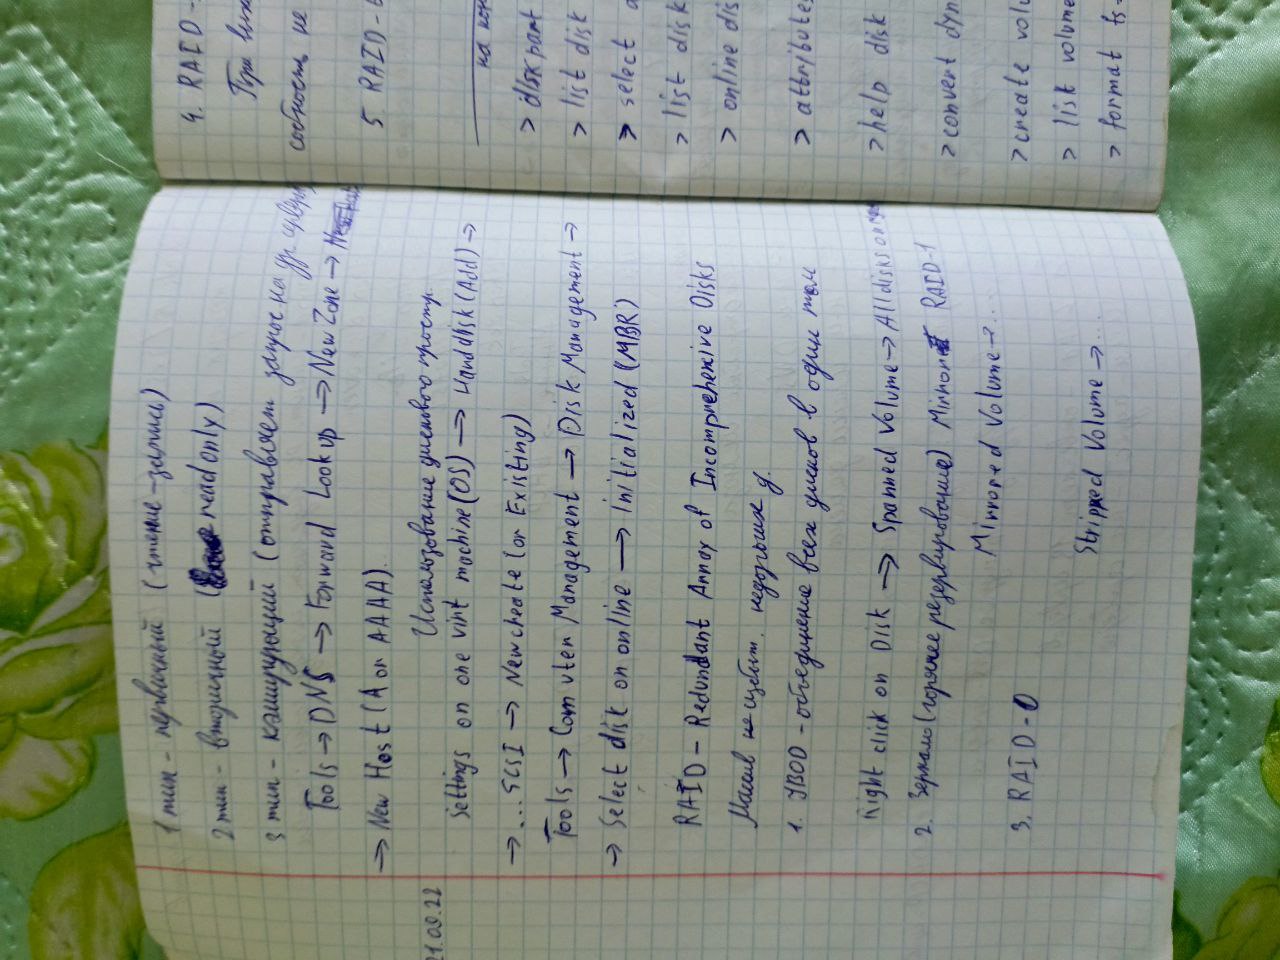 1 тип - первичный (чтение-запись)
2 тип - вторичный (readonly)
3 тип - кэширующий (отправляем запрос на др сервер
Tools → DNS → Forward Lookup → New Zone →
→ New Host (A or AAAA)
21.09.22
Использование дискового простр.
Settings on one virt machine (OS) → Hard disk (Add) →
→ ... SCSI → New create (or Existing)
Tools → Computer Management → Disk Management →
→ Select disk on online → Initialized (MBR)
RAID - Redundant Array of Incomprehensive Disks
Массив
1. JBOD - объединение всех дисков в один том
Right click on Disk → Spanned Volume → All disks on
2. Зеркало (горячее резервирование) Mirror RAID-1
Mirrored Volume → ...
3. RAID-0
Stripped Volume → ...
4. RAID-
При
собность не
5 RAID-
на
> diskpart
> list disk
> select
> list disk
> online dis
> attributes
> help disk
> convert dyn
> create volu
> list volume
> format fs=